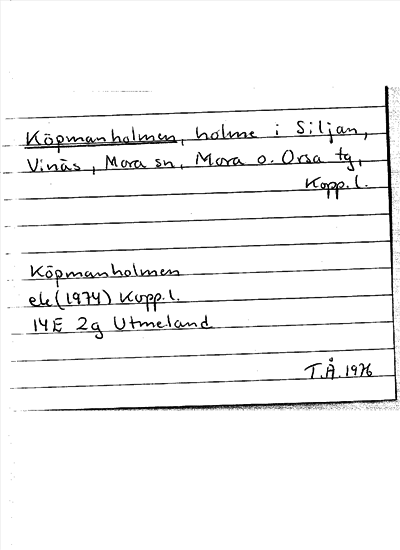 Köpmanholmen, holme i Siljan,
Vinäs, Mora sn, Mora o. Orsa tg,
Kopp. l.
Köpmanholmen
ek (1974) Kopp. l.
14E 2g Utmeland
T.Å. 1976